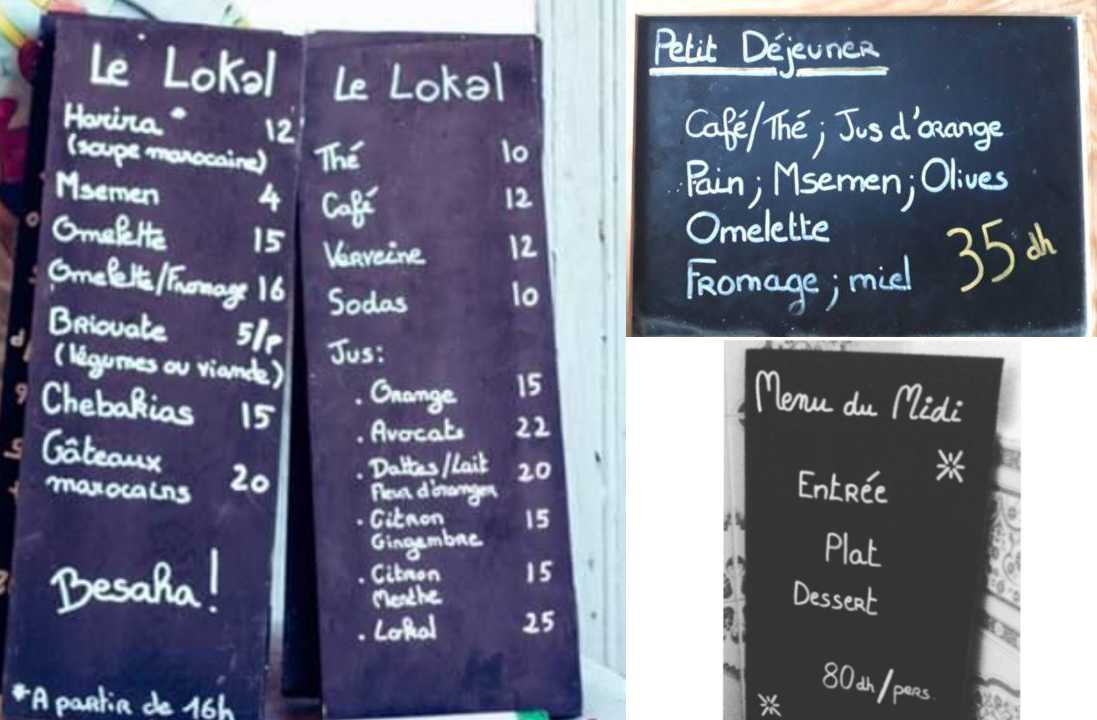 Le Lokal
Harira * 12
(soupe marocaine)
Msemen 4
Omelette 15
Omelette/Fromage 16
Briouate 5/p
(légumes ou viande)
Chebakias 15
Gâteaux
marocains 20
Besaha!
*A partir de 16h
Le Lokal
Thé 10
Café 12
Verveine 12
Sodas 10
Jus:
. Orange 15
. Avocats 22
. Dattes/Lait 20
fleur d'oranger
. Citron 15
Gingembre
. Citron 15
Menthe
. Lokal 25
Petit Déjeuner
Café/Thé ; Jus d'orange
Pain ; Msemen ; Olives
Omelette
Fromage ; miel
35 dh
Menu du Midi
Entrée
Plat
Dessert
80dh/pers.